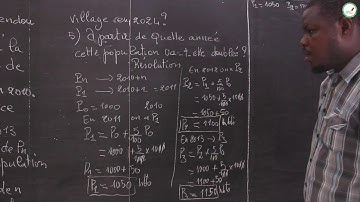 village en 2024 ?
5) A partir de quelle année
cette population va-t-elle doubler ?
Résolution
Pn → 2010+n
P1 → 2010+1 = 2011
P0 = 1000 2010
En 2011 on a P1
P1 = P0 + 5/100 P0
= 1000 + 5/100 × 1000
P1 = 1000 + 50
P1 = 1050 hbts
En 2012 on a P2
P2 = P1 + 5/100 P0
= 1050 + 5/100 × 1000
= 1050 + 50
P2 = 1100 hbts
En 2013 → P3
P3 = P2 + 5/100 P0
= 1100 + 5/100 × 1000
= 1100 + 50
P3 = 1150 hbts
P1 = 1050
la
de
013
de Pn
opulation
de n